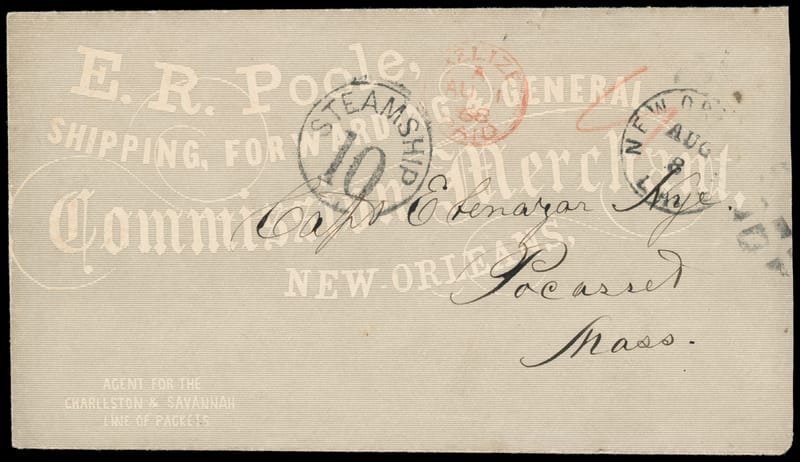 E. R. Poole,
SHIPPING, FORWARDING & GENERAL
Commission Merchant,
NEW-ORLEANS,
AGENT FOR THE
CHARLESTON & SAVANNAH
LINE OF PACKETS
STEAMSHIP
10
BELIZE
AU 1
68
PAID
NEW OR
AUG
8
LA.
Capt Ebenezar Nye.
Pocasset
Mass.